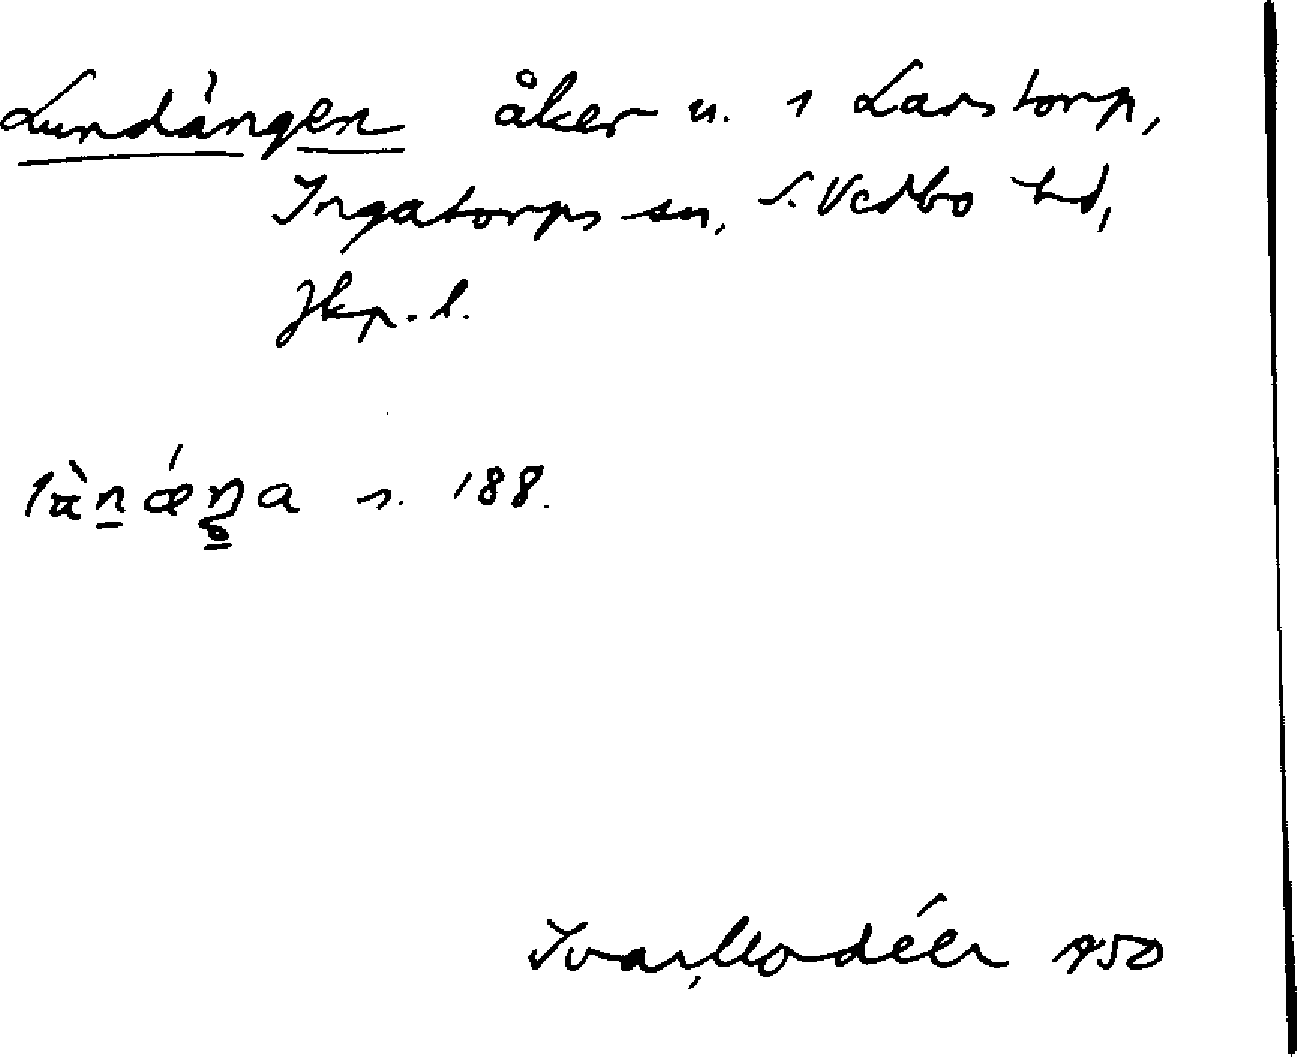 Lundängen åker u. 1 Larstorp,
Ingatorps sn, S. Vedbo hd,
Jkp. l.
s. 188.
Ivar Modéer 1950